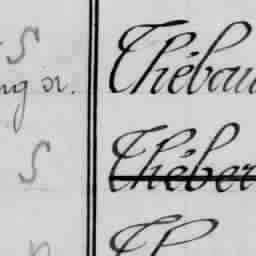 S
Thébau
ng or.
S
Théber
Th